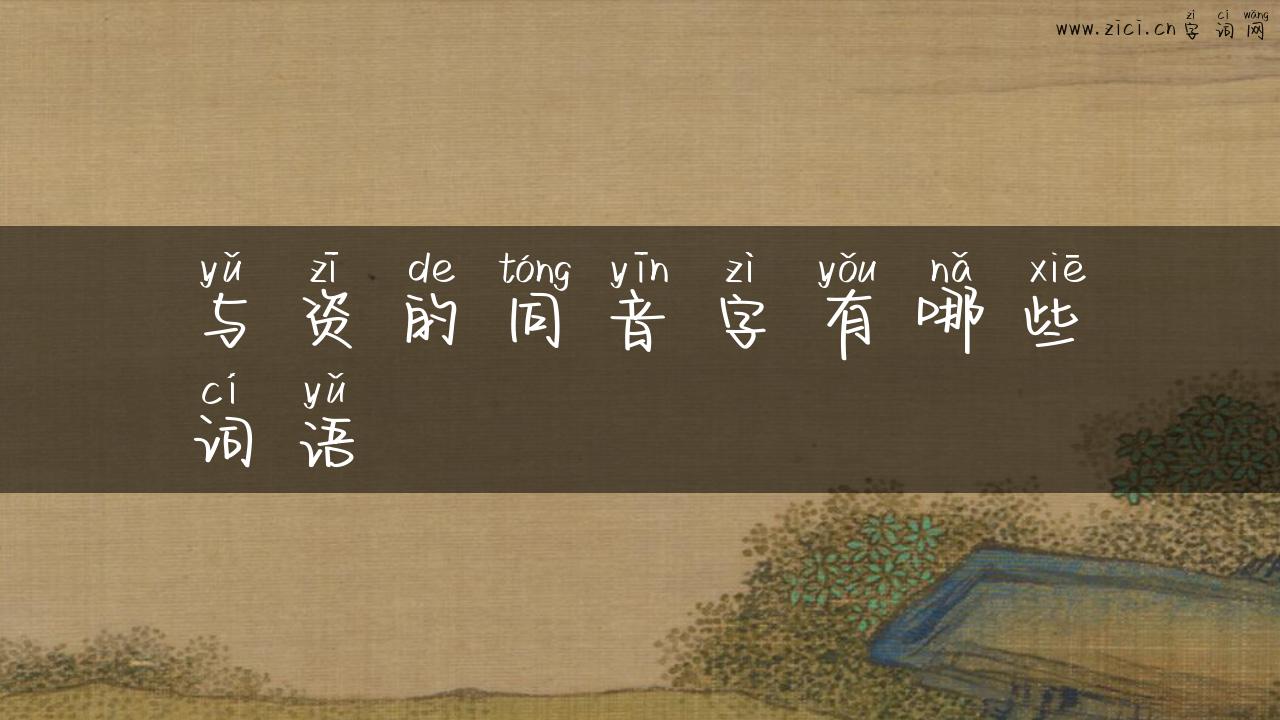 zì cí wǎng
www.zici.cn 字 词 网
yǔ zī de tóng yīn zì yǒu nǎ xiē
与 资 的 同 音 字 有 哪 些
cí yǔ
词 语